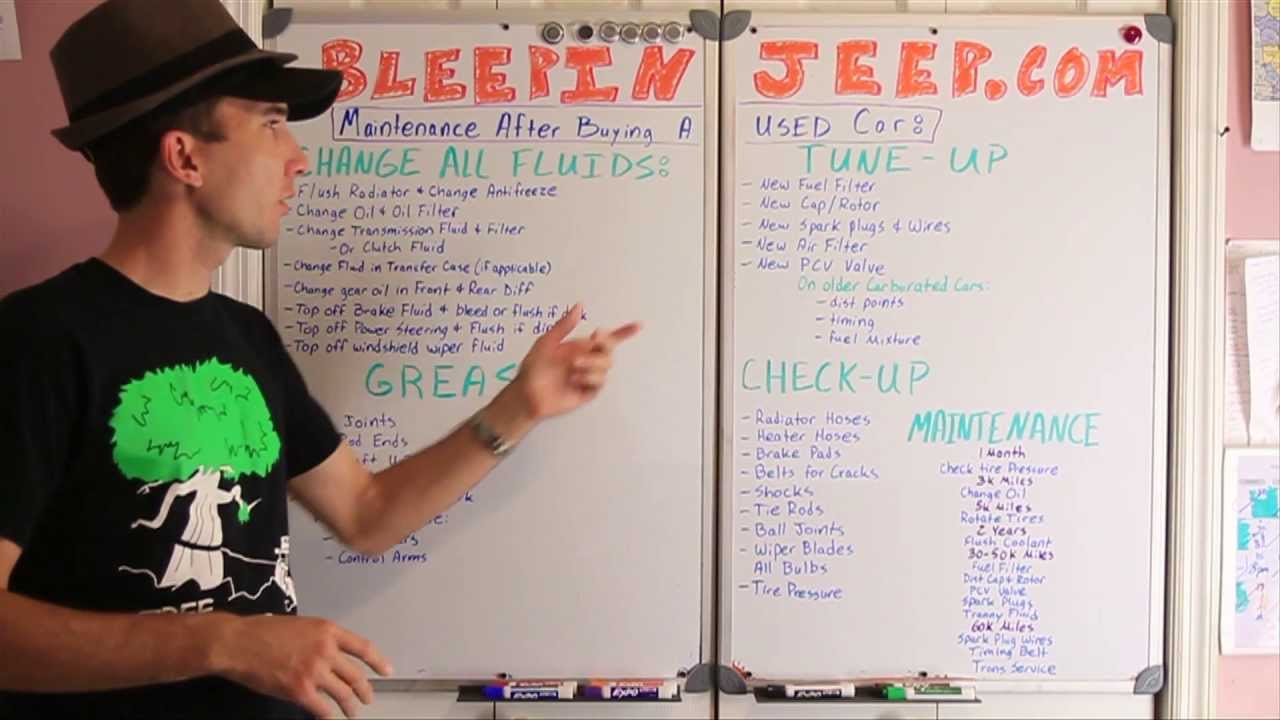 BLEEPIN JEEP.COM
Maintenance After Buying A USED Car:
CHANGE ALL FLUIDS:
Flush Radiator & Change Antifreeze
- Change Oil & Oil Filter
- Change Transmission Fluid & Filter
- Or Clutch Fluid
- Change Fluid in Transfer Case (if applicable)
- Change gear oil in Front & Rear Diff
- Top off Brake Fluid & bleed or flush if
- Top off Power Steering & Flush if
- Top off windshield wiper fluid
GREAS
Joints
Rod Ends
- Control Arms
TUNE-UP
- New Fuel Filter
- New Cap/Rotor
- New Spark plugs & Wires
- New Air Filter
- New PCV Valve
On older Carborated Cars:
- dist points
- timing
- fuel Mixture
CHECK-UP
- Radiator Hoses
- Heater Hoses
- Brake Pads
- Belts for Cracks
- Shocks
- Tie Rods
- Ball Joints
- Wiper Blades
All Bulbs
- Tire Pressure
MAINTENANCE
1 Month
Check tire Pressure
3k Miles
Change Oil
5k Miles
Rotate Tires
2 Years
Flush Coolant
30-50k Miles
Fuel Filter
Dist Cap & Rotor
PCV Valve
Spark Plugs
Tranny Fluid
60k Miles
Spark Plug Wires
Timing Belt
Trans Service
TREE
EXPO
EXPO